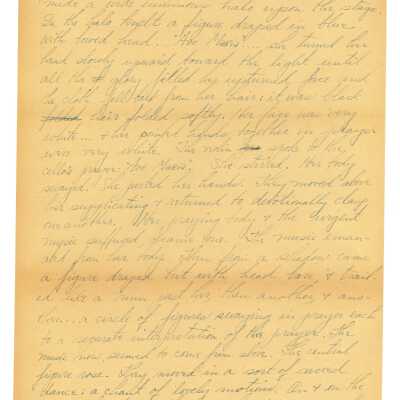 made a wide luminous halo upon the stage.
In the halo knelt a figure draped in blue
with bowed head. "Ave Maria".... she turned her
head slowly upward toward the light until
all the glory filled her upturned face and
the cloth fell back from her hair: it was black
hair folded softly. Her face was very
white... & her hands, together in prayer
was very white. The violin spoke to the
cello's prayer, "Ave Maria". She stirred. Her body
swayed. She parted her hands. They moved above
her supplicating & returned to devotionally clasp
one another. Over praying body & the
music suffused one. The music eman-
ated from her body. Then from a shadow came
a figure draped but with head bare &
ed like a nun past her, then another & ano-
ther... a circle of figures swaying in prayer each
to a separate interpretation of the prayer. The
music now seemed to come from above. The central
figure rose. They moved in a sort of sacred
dance: a chant of lovely motions. On & on the